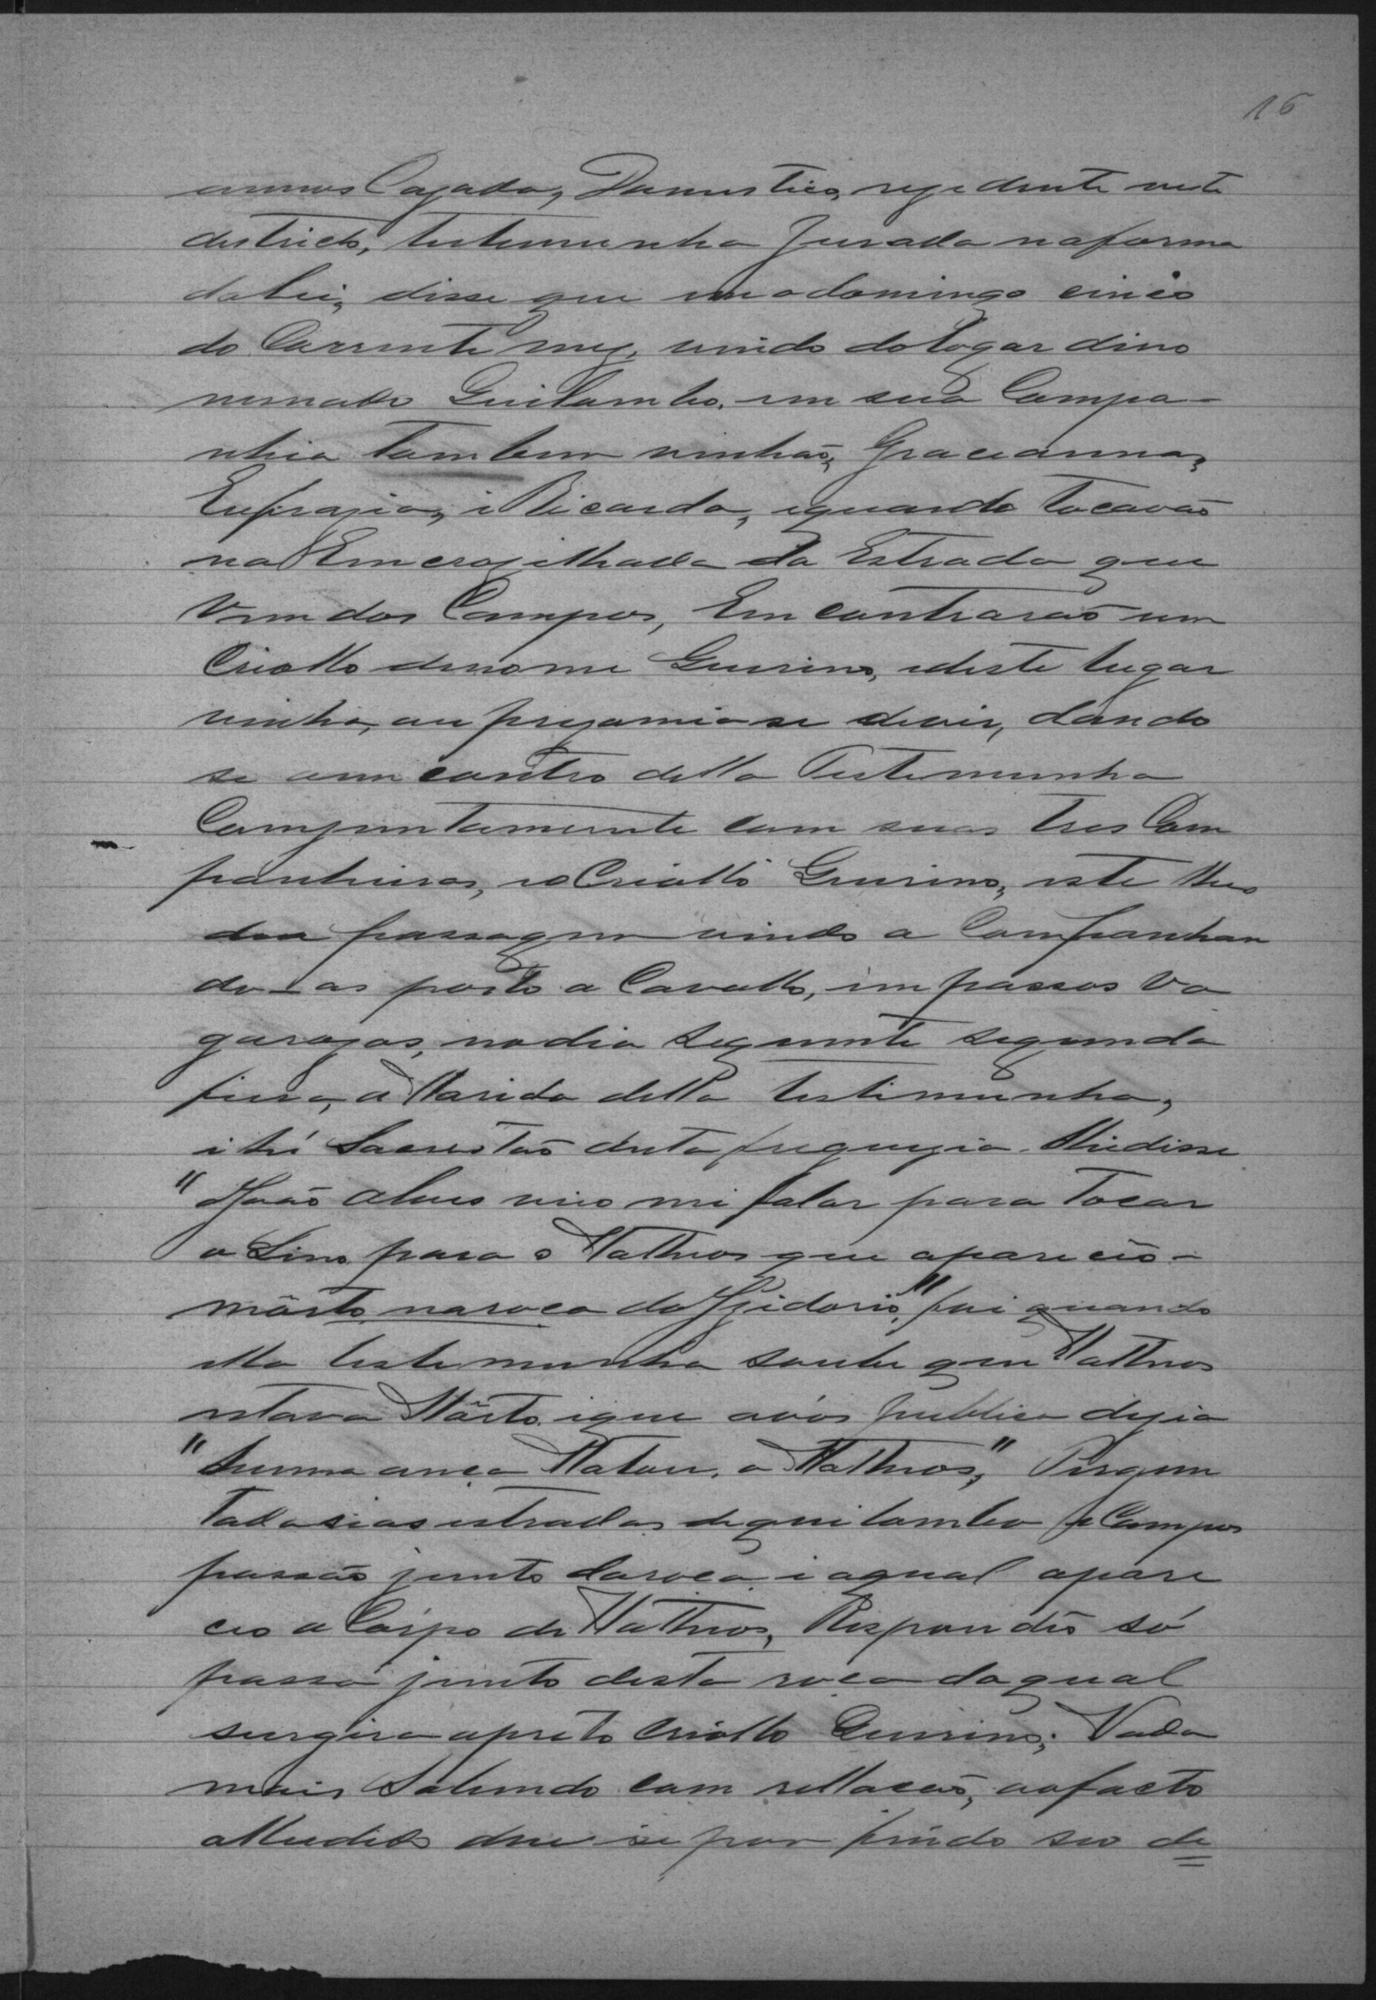 16
annos Cazada, Domestica, rezidente neste
districto, testemunha Jurada na forma
da lei, disse que no domingo cinco
do Corrente mez, vindo do logar dino
nimado Quilambo, em sua Compa-
nhia tambem vinhão, Gracianna,
Eufrazia, i Ricarda, equando tocavão
na Emcrozilhada da Estrada que
Vem dos Campos, Emcontrarão um
Criollo denome Guirino, e deste lugar
vinha, au prezamia se devir, dando
se o emcontro della Testemunha
Comjuntamente com suas tres Com
panheiras, eo Criollo Guirino, este lhes
deu passagem vindo a Companhan
do-as posto a Cavallo, im passos Va
garozos, no dia seguinte segunda
feira, o Marido della testemunha,
i hé Sacrestão desta freguezia. lhe disse
"João Alves veio mi falar para Tocar
o Sino para o Matheos que apareceo-
môrto na roca do Izidorio," foi quando
ella testemunha soube que Matheos
estava Môrto, i que avós publica dizia
" Matou, o Matheos," Pergun
tada si as estradas dequilambo e Campos
passão junto daroca i aqual apare
ceo o Côrpo de Matheos, Respondeo só
passa junto desta roca da qual
surgira o preto Criollo Guirino; Nada
mais Sabendo com rellacão, ao facto
alludido deu se por findo seo de